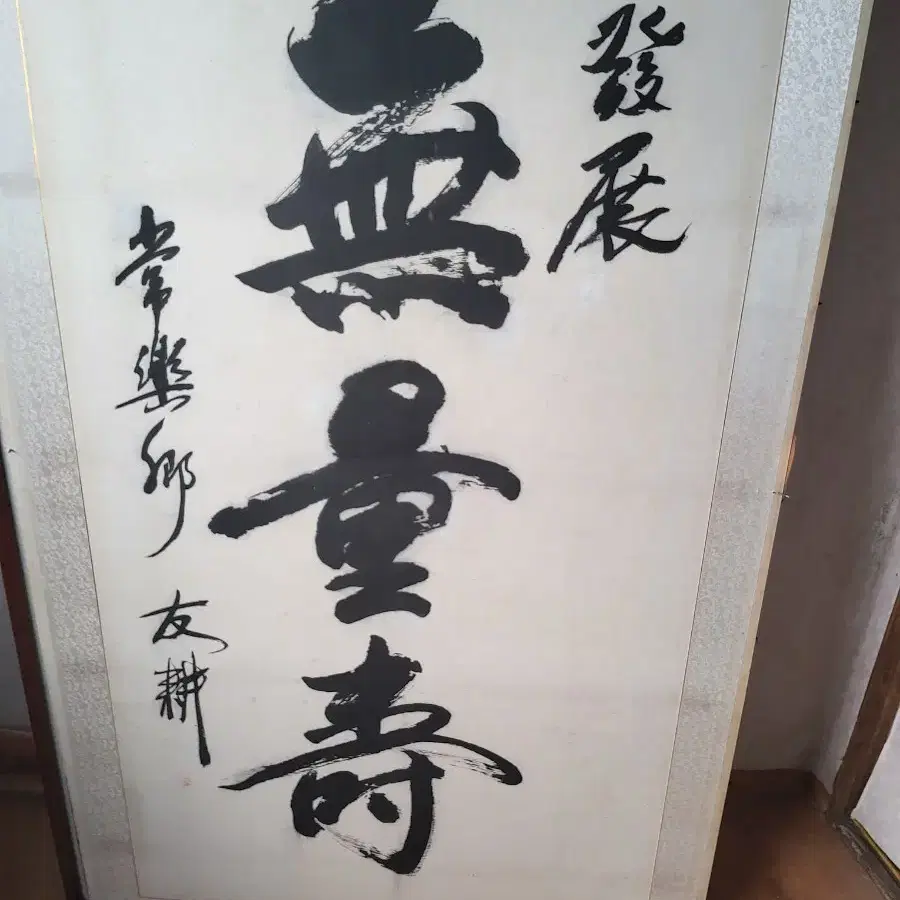 發展
無量壽
常樂鄉 友耕